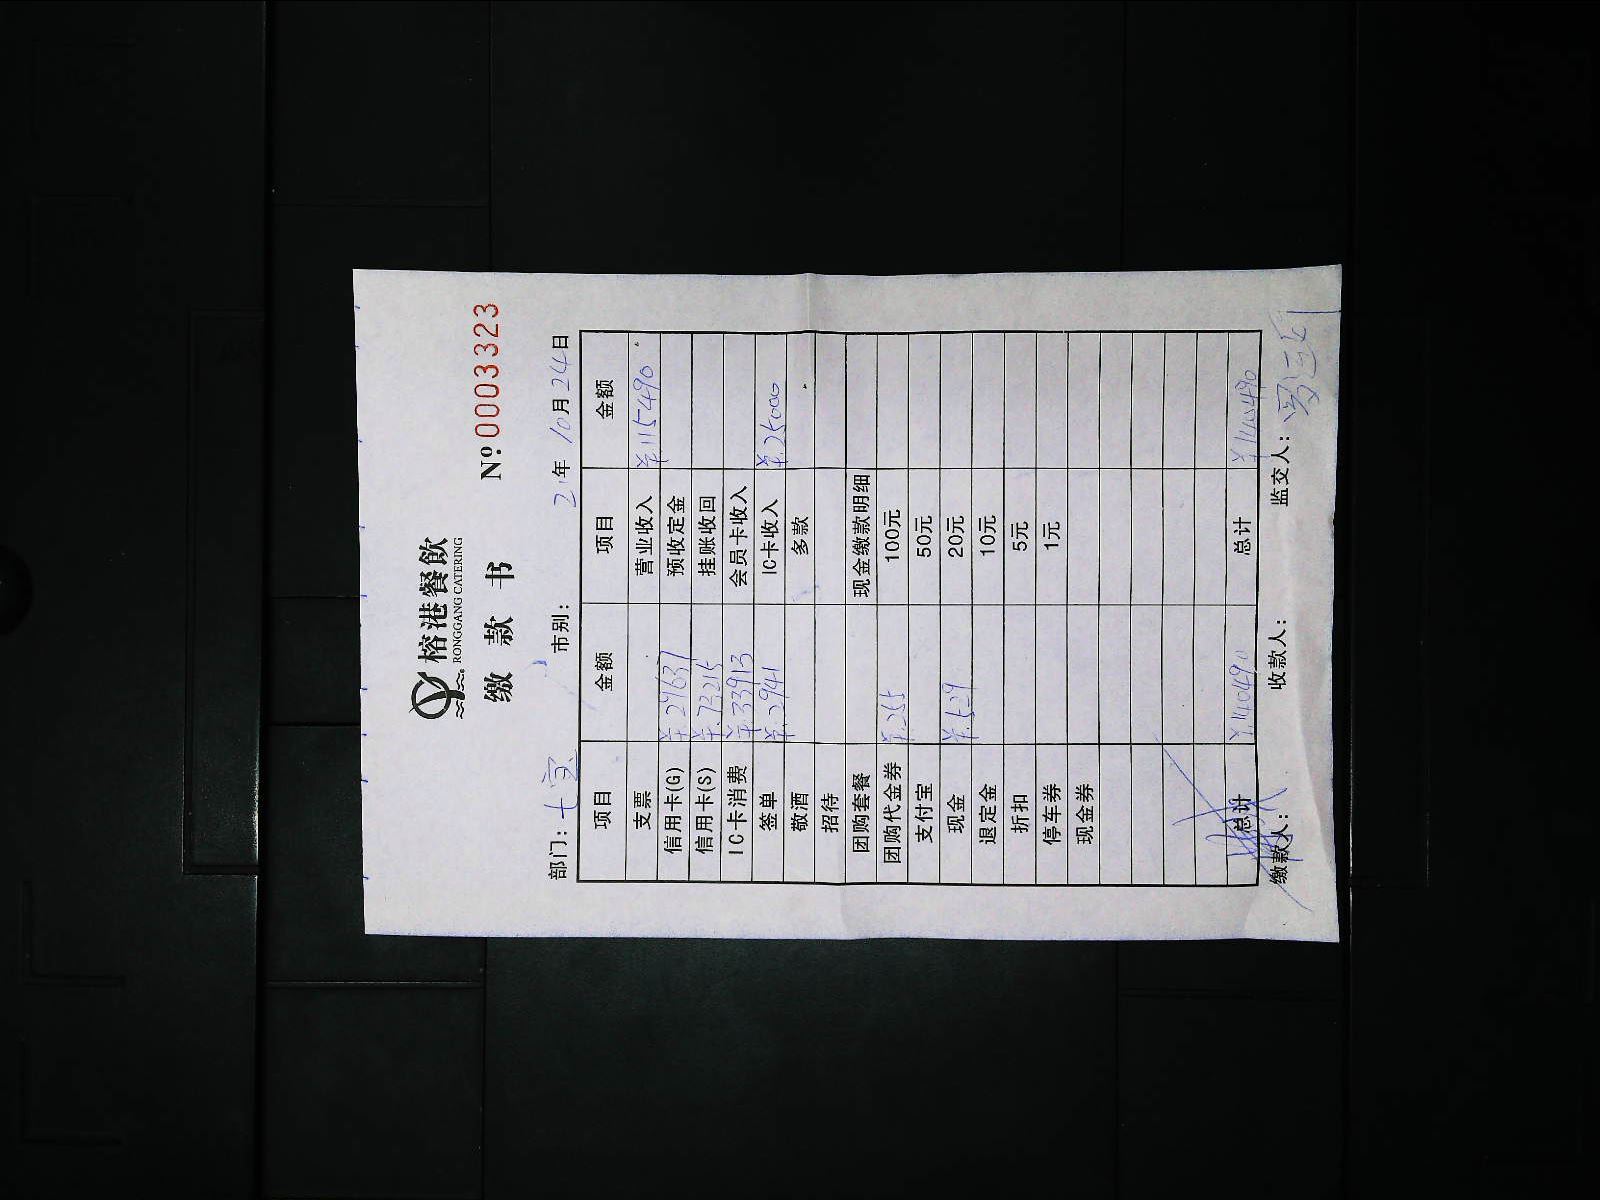 榕港餐飲
RONGGANG CATERING
缴 款 书
Nº:0003323
部门: 七宝 市别: 21年 10月24日
项目 金额 项目 金额
支票 营业收入 ¥115490
信用卡(G) ¥29637 预收定金
信用卡(S) ¥73215 挂账收回
IC卡消费 ¥33913 会员卡收入
签单 ¥2941 IC卡收入 ¥25000
敬酒 多款
招待
团购套餐 现金缴款明细
团购代金券 ¥255 100元
支付宝 50元
现金 ¥529 20元
退定金 10元
折扣 5元
停车券 1元
现金券
总计 总计
缴款人: 收款人: 监交人: